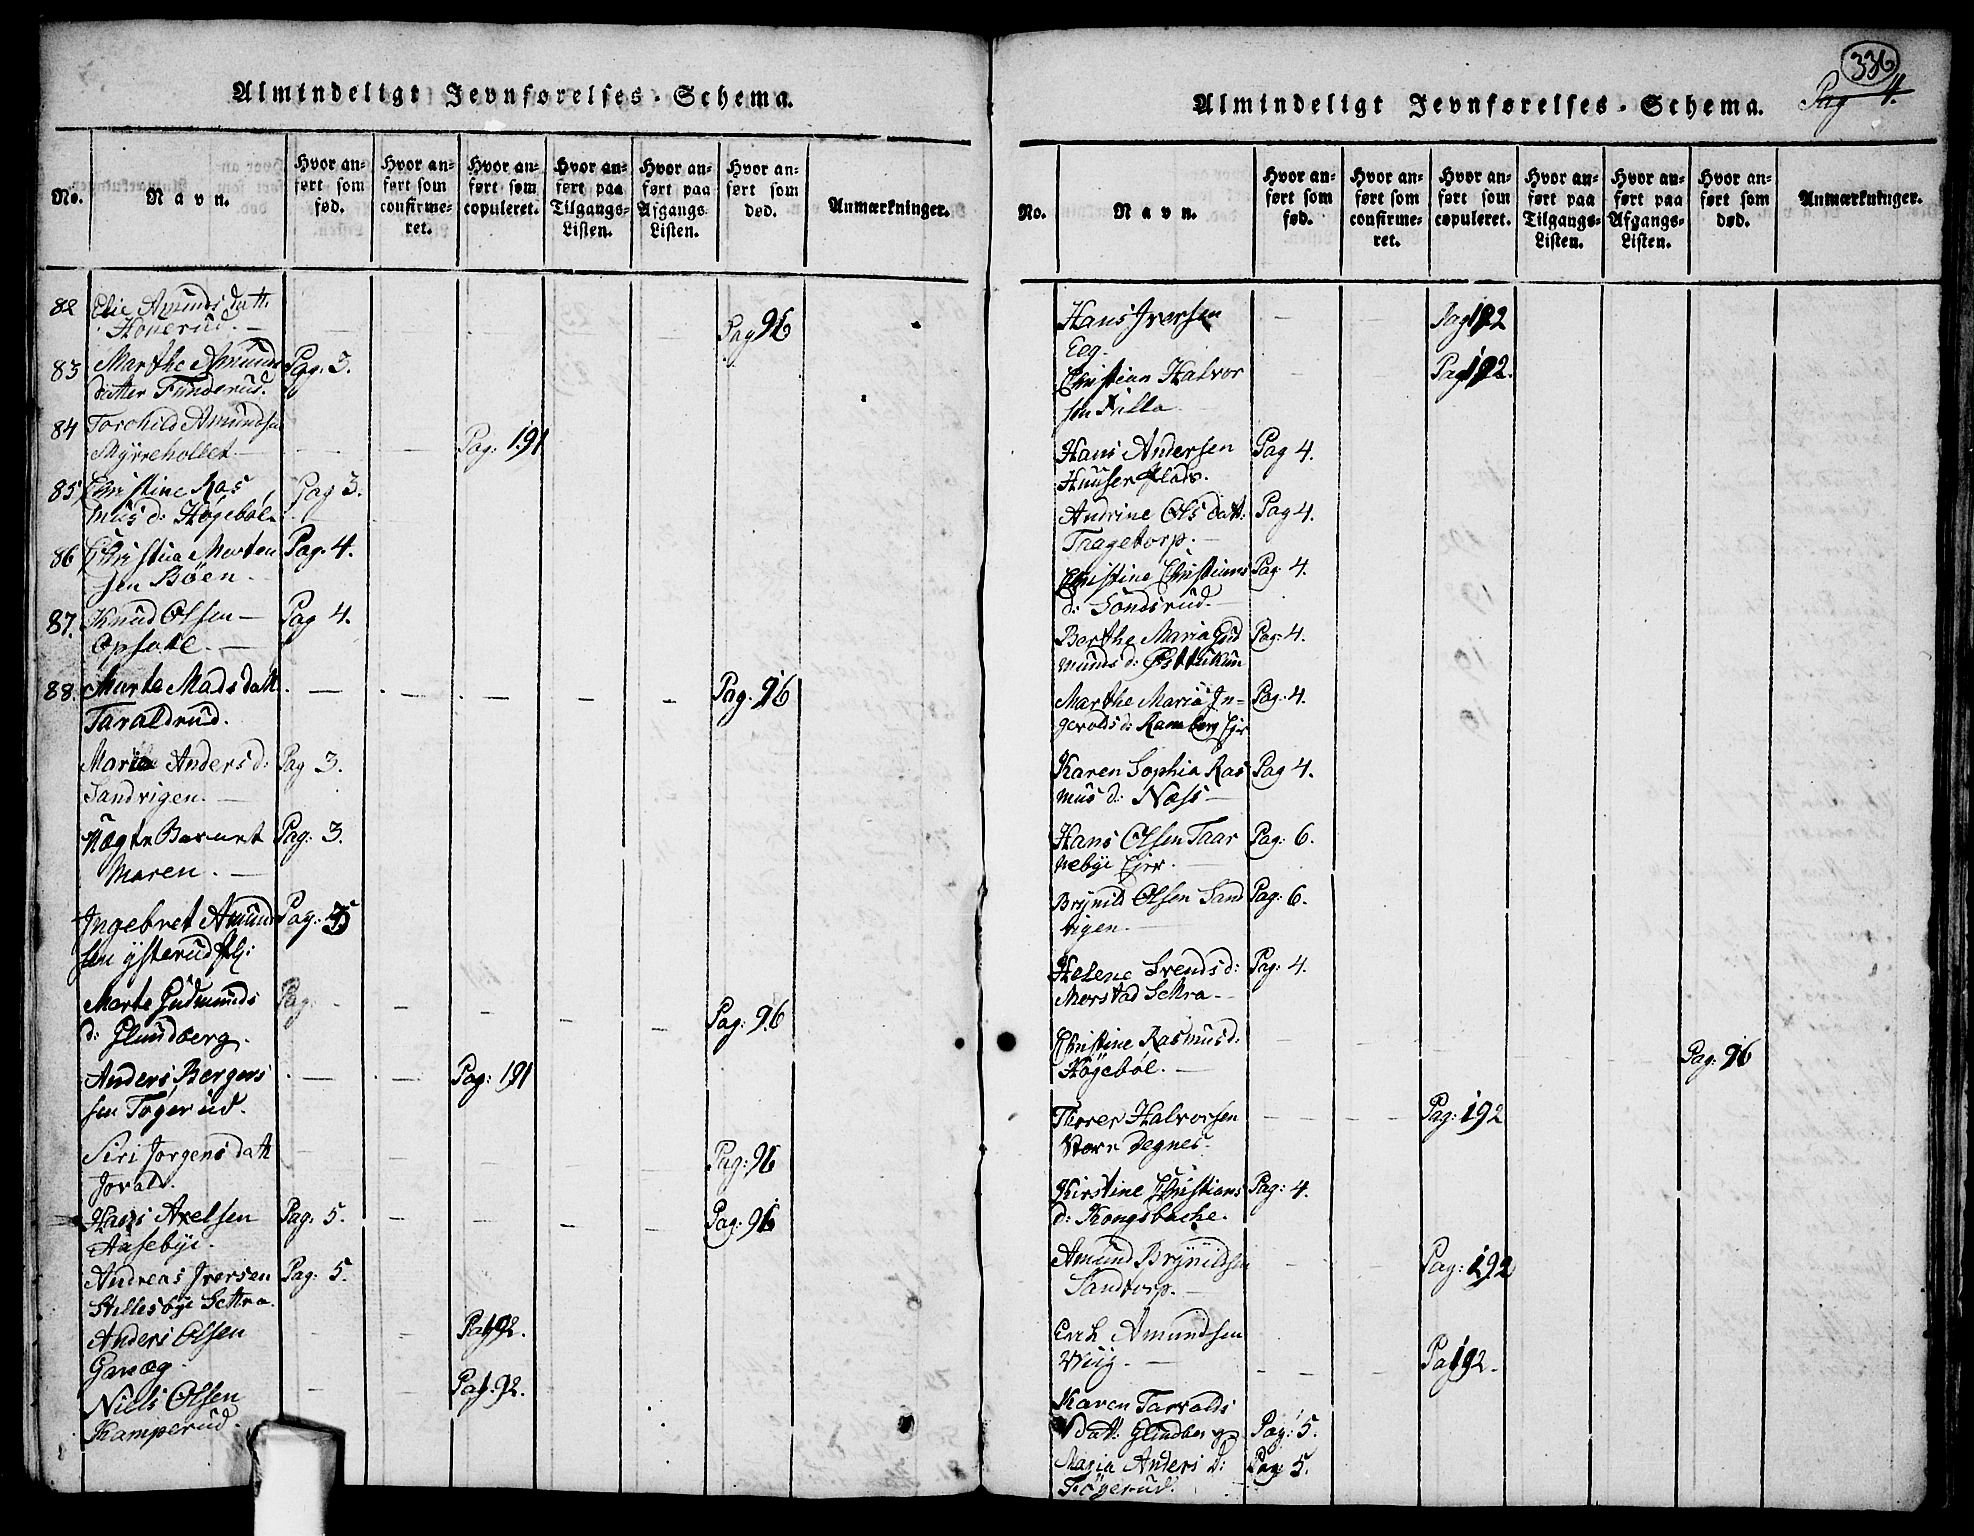 Almindeligt Jevnførelses-Schema.
No.
Navn.
Hvor anført som fød.
Hvor anført som confirmeret.
Hvor anført som copuleret.
Hvor anført paa Tilgangs-Listen.
Hvor anført paa Afgangs-Listen.
Hvor anført som død.
Anmærkninger.
82 Elie Amunds datt.
Honerud. — Pag 96
83 Marthe Amunds Pag. 3.
datter Funderud.
84 Torchild Amundsen
Myrehollet — Pag: 191
85 Christine Ras Pag 3.
mus d: Høgebøl
86 Christia Morten Pag. 4.
sen Böen —
87. Knud Olsen — Pag 4.
Opsahl. —
88. Marte Mads datt. — Pag. 96
Taraldrud.
Maria Anders d: Pag 3.
Sandvigen. —
Uægte Barnet Pag: 3.
Maren. —
Ingebret Amund Pag: 5
sen Ysterud
Marte Gudmunds Pag: — Pag: 96
d: Glundberg.
Anders Bergers — Pag: 191
sen Togerud.
Siri Jorgens datt — Pag: 96
Jovald.
Hans Axelsen Pag: 5. — Pag: 96
Aasebye.
Andreas Iversen Pag: 5.
Stillesbye Settra.
Anders Olsen — Pag 192.
Ganæg.
Niels Olsen — Pag. 192.
Kamperud.
336
Pag 4.
Almindeligt Jevnførelses-Schema.
No.
Navn.
Hvor anført som fød.
Hvor anført som confirmeret.
Hvor anført som copuleret.
Hvor anført paa Tilgangs-Listen.
Hvor anført paa Afgangs-Listen.
Hvor anført som død.
Anmærkninger.
Hans Iversen — Pag 192
Eeg.
Christian Halvor — Pag 192.
sen
Hans Andersen Pag 4.
Huuser Plads.
Andrine Ols datt: Pag 4.
Tragetorp. —
Christine Christians Pag 4.
d: Sondsrud. —
Berthe Maria Gud Pag: 4.
munds d:
Marthe Maria In- Pag. 4.
gerolds d: Ramberg Ejer
Karen Sophia Ras Pag 4.
mus d: Næss —
Hans Olsen Taar Pag: 6.
nebye Ejer. —
Brynild Olsen Sand Pag: 6.
vigen. —
Helene Svends d: Pag: 4.
Morstad Settra —
Christine Rasmus d: — Pag. 96
Høgebøl. —
Thorer Halvorsen — Pag: 192
Store Degnes.
Kirstine Christians Pag: 4.
d: Kongsbache.
Amund Brynildsen — Pag: 192
Sandtorp. —
Erich Amundsen
Wiig. — Pag 192.
Karen Tarvalds
datt: Glundberg Pag: 5.
Maria Anders d: Pag 5.
Togerud.